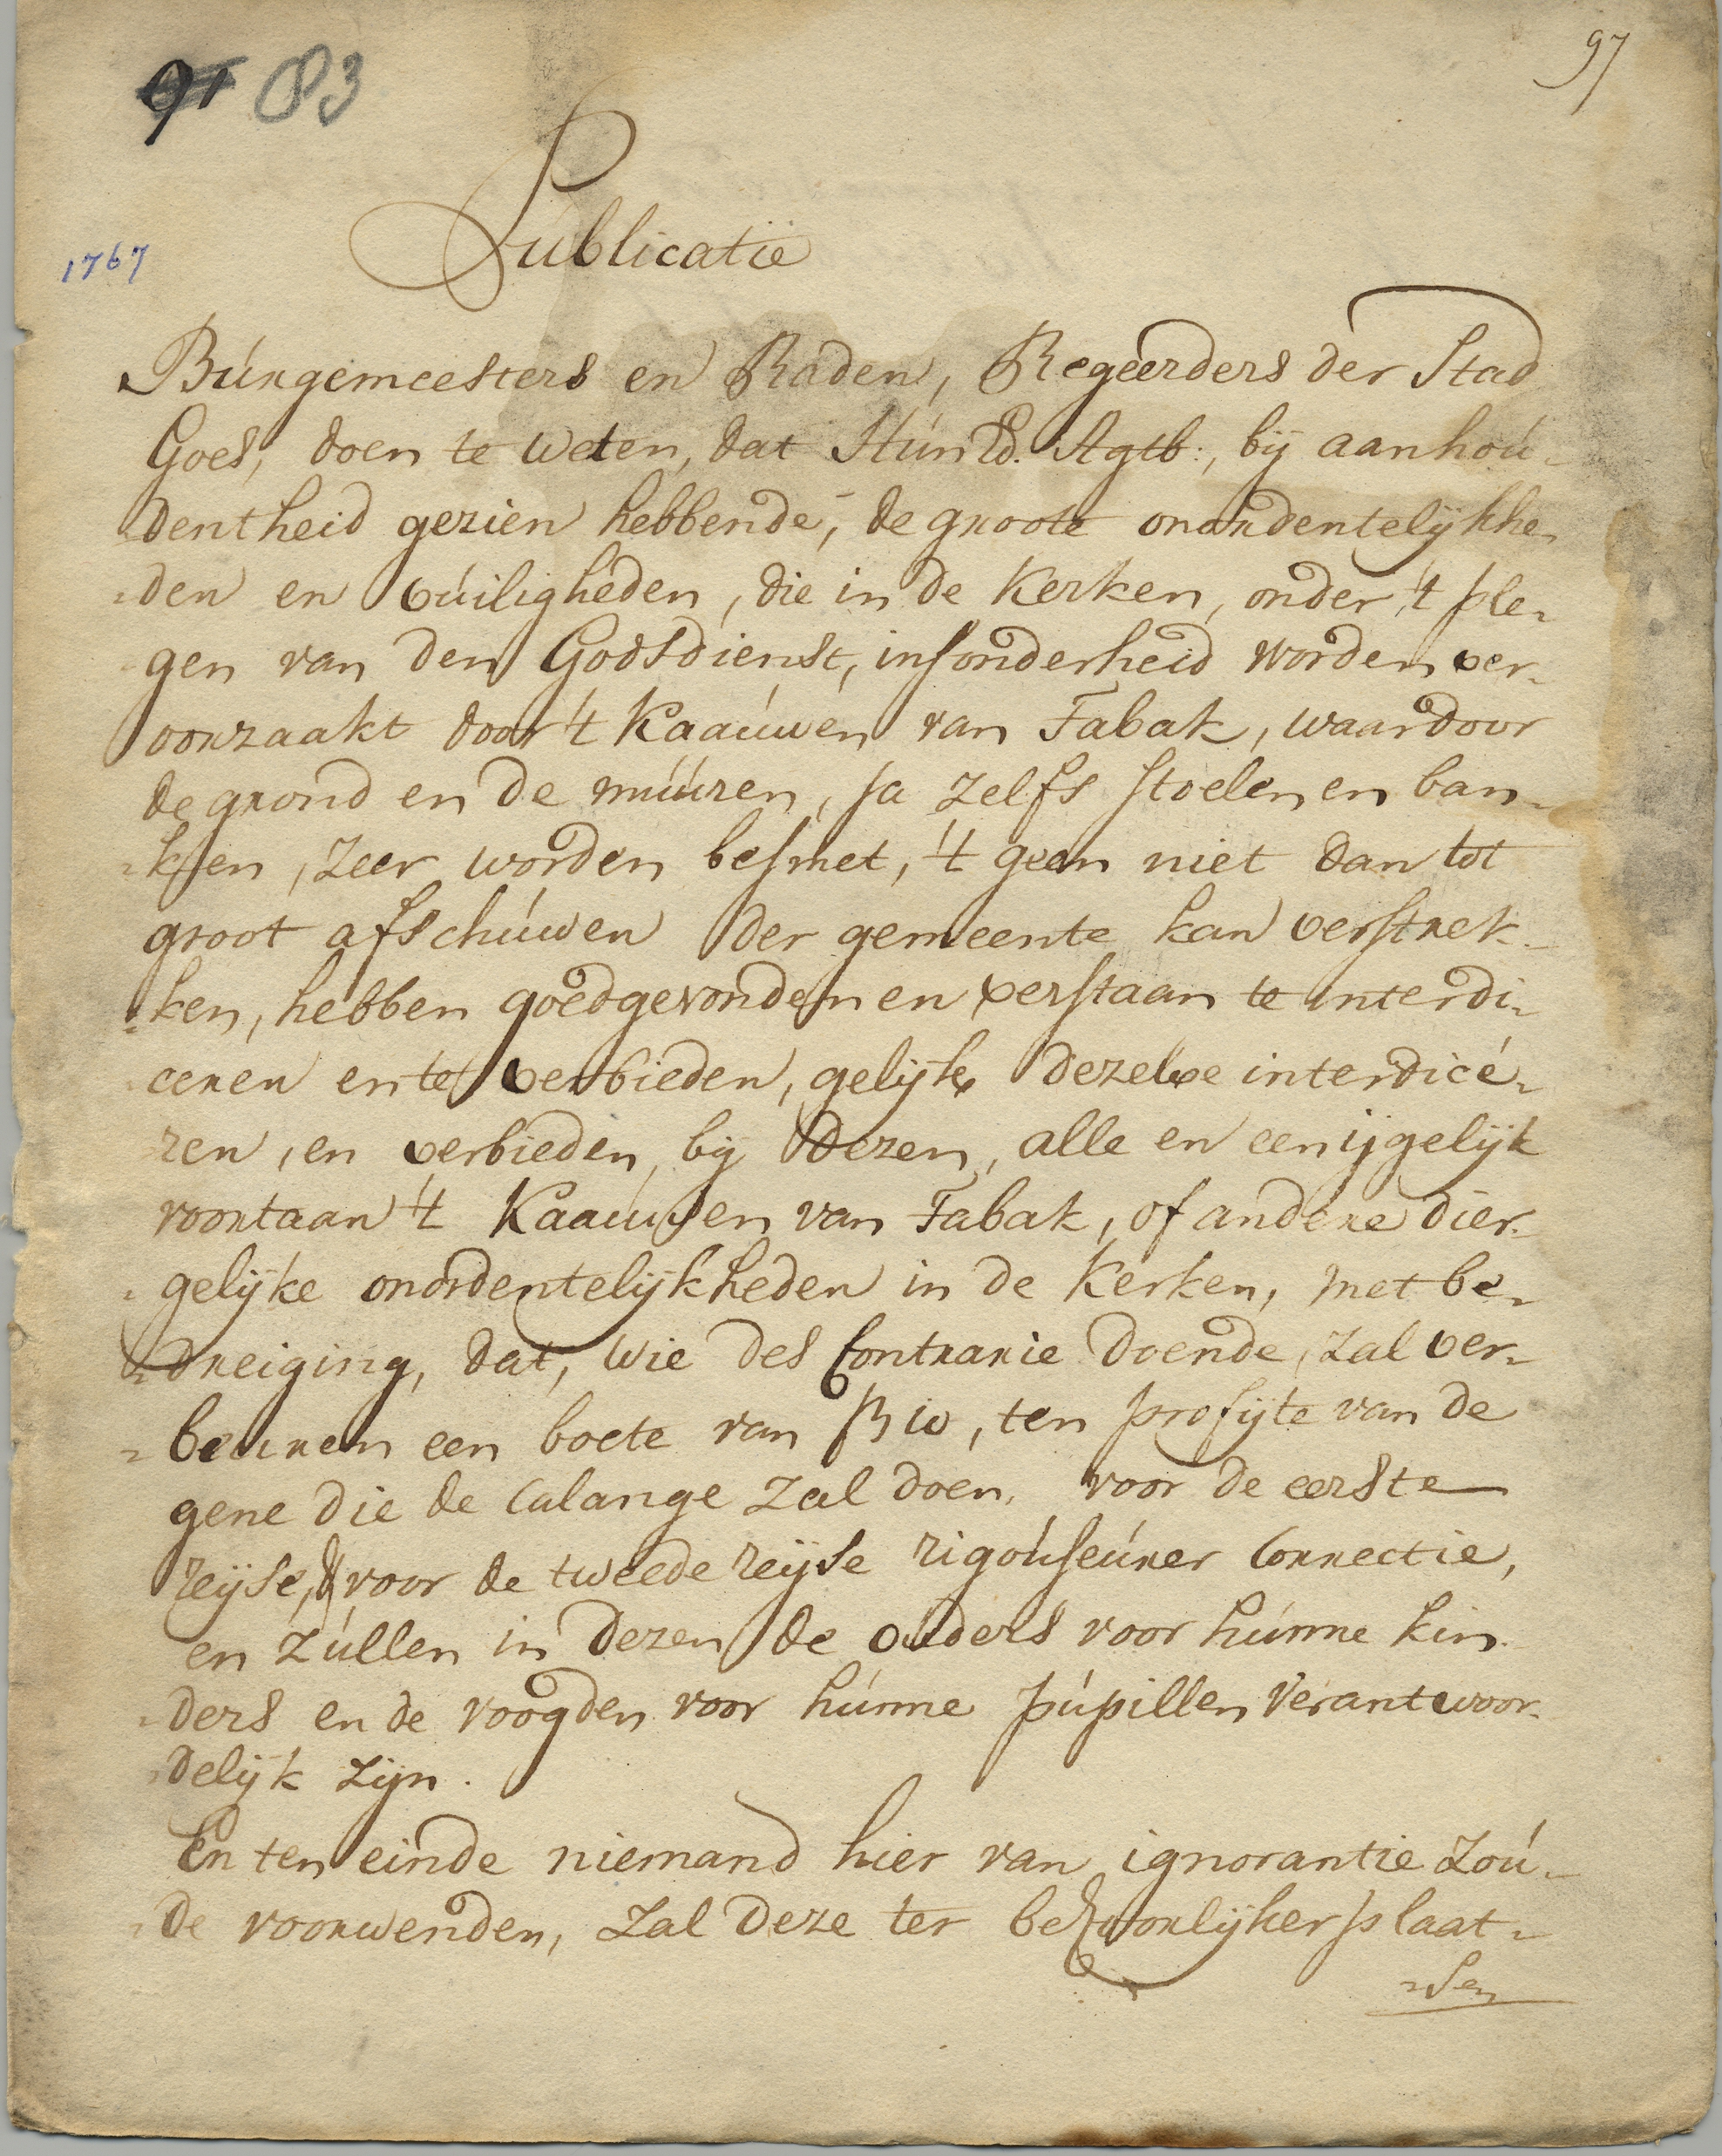 91 83
97
1767
Publicatie
Burgemeesters en Raden, Regeerders der Stad
Goes, doen te weten, dat Hun Ed. Agtb:, bij aanhou-
dentheid gezien hebbende, de groote onordentelijkhe-
-den en vuiligheden, die in de Kerken, onder 't ple-
gen van den Godsdienst, insonderheid worden ver-
oorzaakt door 't Kaauwen van Tabak, waardoor
de grond en de muuren, ja zelfs stoelen en ban-
-ken, zeer worden besmet, 't geen niet dan tot
groot afschuwen der gemeente kan verstrek-
-ken, hebben goedgevonden en verstaan te interdi-
ceren en te verbieden, gelijk dezelve interdicé-
ren, en verbieden, bij Dezen, alle en een ijgelijk
voortaan 't Kaauwen van Tabak, of andere dier-
-gelijke onordentelijkheden in de Kerken, met be-
-dreiging, dat, wie des Contrarie doende, zal ver-
-beuren een boete van ß 10, ten profijte van de
gene die de Calange zal doen, voor de eerste
reijse, & voor de tweede reijse rigouseurer Correctie,
en zullen in dezen de ouders voor hunne kin-
-ders en de voogden voor hunne pupillen verantwoor-
-delijk zijn.
En ten einde niemand hier van ignorantie zou-
-de voorwenden, zal deze ter behoorlijker plaat-
-sen